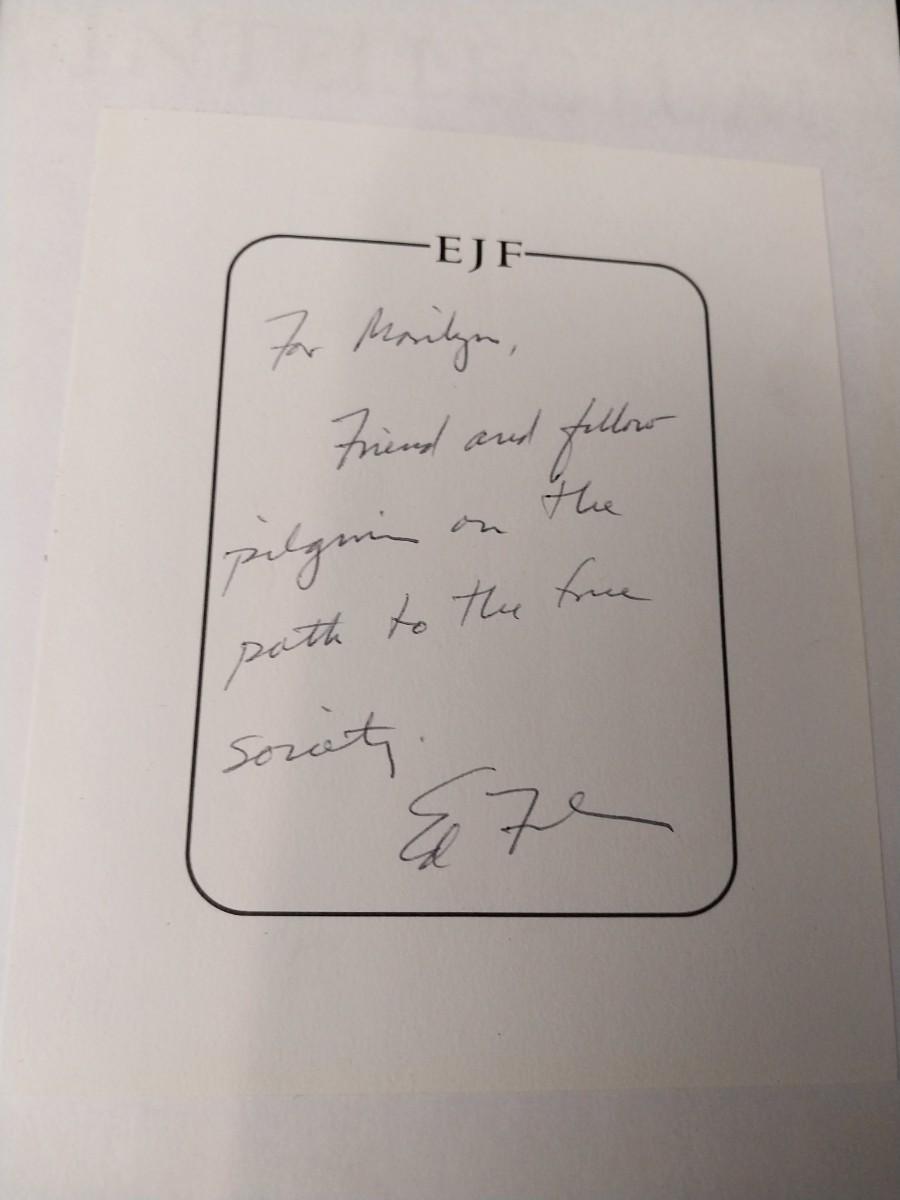 EJF
For Marilyn,
Friend and fellow
pilgrim on the
path to the free
society.
Ed